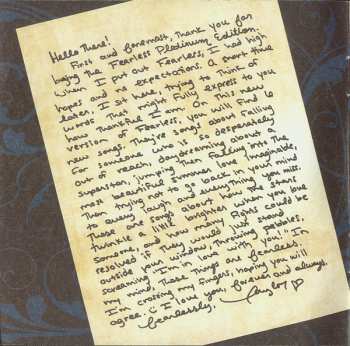 Hello There!
First and foremost, thank you for
buying the Fearless Platinum Edition.
When I put out Fearless, I had high
hopes and no expectations. A short time
later, I sit here, trying to think of
words that might fully express to you
how thankful I am. On this new
version of Fearless, you will find 6
new songs. They're songs about falling
for someone who is so desperately
out of reach, daydreaming about a
superstar, jumping then falling into the
most beautiful summer love imaginable,
then trying not to go back in your mind
to every laugh and everything you miss.
These are songs about how the stars
twinkle a little brighter when you love
someone, and how many fights could be
resolved if they would just stand
outside your window, throwing pebbles,
screaming "I'm in love with you!" In
my mind, these things are fearless.
I'm crossing my fingers, hoping you will
agree. :) I love you, forever and always.
Fearlessly,
Taylor ♡